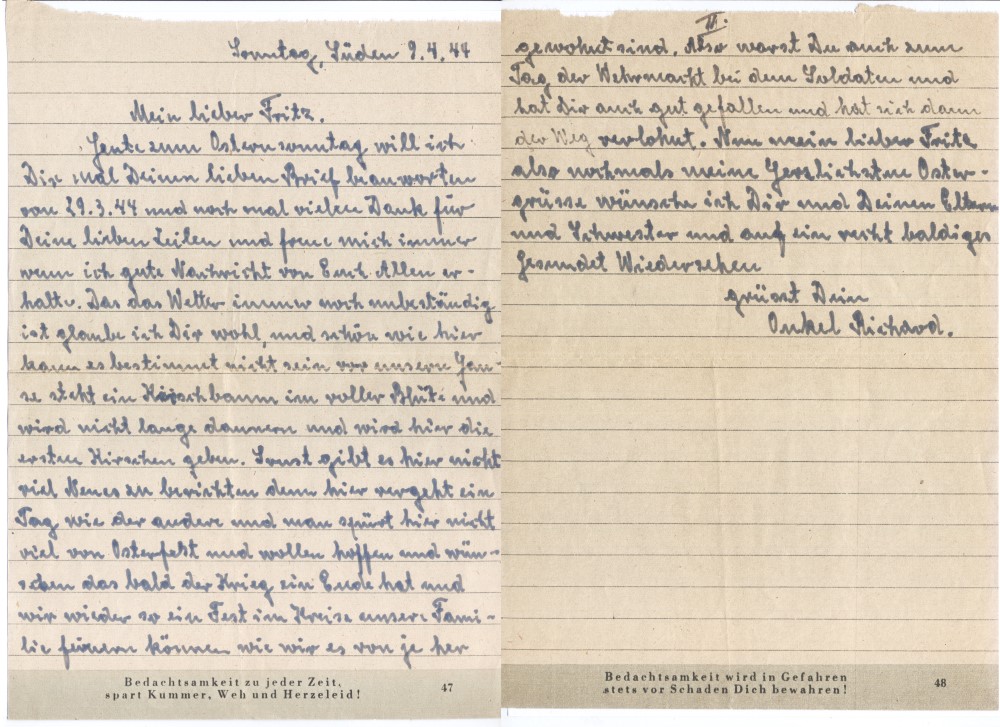 Sonntag, Süden 9.4.44
Mein lieber Fritz.
Heute zum Osternsonntag will ich
Dir mal Deinen lieben Brief beanworten
von 29.3.44 und noch mal vielen Dank für
Deine lieben Zeilen und freue mich immer
wenn ich gute Nachricht von Euch Allen er-
halte. Das das Wetter immer noch unbeständig
ist glaube ich Dir wohl, und schön wie hier
kann es bestimmt nicht sein vor unsern Hau-
se steht ein Kirschbaum im voller Blüte und
wird nicht lange dauern und wird hier die
ersten Kirschen geben. Sonst gibt es hier nicht
viel Neues zu berichten denn hier vergeht ein
Tag wie der andere und man spürt hier nicht
viel von Osterfest und wollen hoffen und wün-
schen das bald der Krieg ein Ende hat und
wir wieder so ein Fest im Kreise unsere Fami-
lie feiern können wie wir es von je her
Bedachtsamkeit zu jeder Zeit,
spart Kummer, Weh und Herzeleid!
47
II.
gewohnt sind. Also warst Du auch zum
Tag der Wehrmacht bei dem Soldaten und
hat Dir auch gut gefallen und hat sich dann
der Weg verlohnt. Nun mein lieber Fritz
also nochmals meine Herzlichsten Oster-
grüsse wünsche ich Dir und Deinen Eltern
und Schwester und auf ein recht baldiges
Gesundet Wiedersehen
grüsst Dein
Onkel Richard.
Bedachtsamkeit wird in Gefahren
stets vor Schaden Dich bewahren!
48